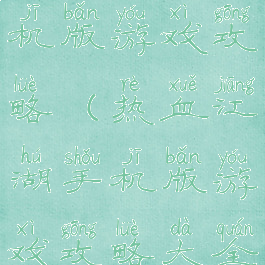 jī bǎn yóu xì gōng
机版游戏攻
lüè rè xuè jiāng
略（热血江
hú shǒu jī bǎn yóu
湖手机版游
xì gōng lüè dà quán
戏攻略大全